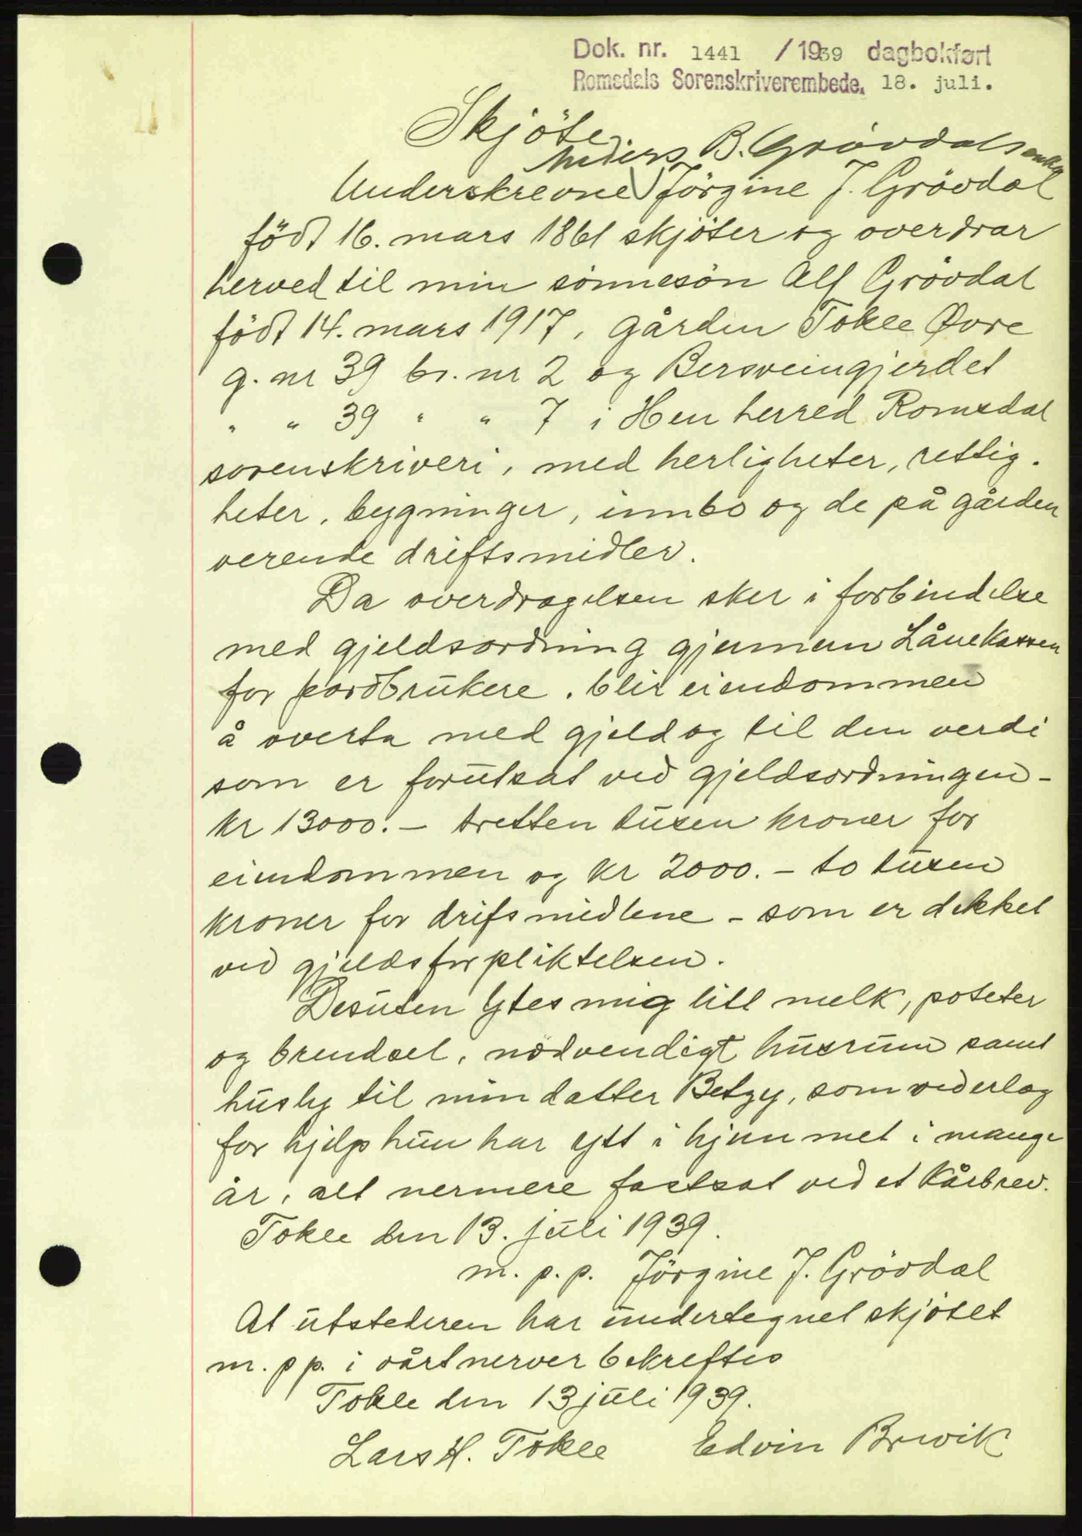 Dok. nr. 1441 / 1939 dagbokført
Romsdals Sorenskriverembede, 18. juli.
Skjöte
Anders B. Grövdals enke
Underskrevne Jörgine J. Grövdal
födt 16. mars 1861 skjöter og overdrar
herved til min sönnesön Alf Grövdal
födt 14. mars 1917, gården Tokle Øvre
g. nr 39 br. nr 2 og Bersveingjerdet
" " 39 " " 7 i Hen herred Romsdal
sorenskriveri, med herligheter, rettig-
heter, bygninger, innbo og de på gården
verende driftsmidler.
Da overdragelsen sker i forbindelse
med gjeldsordning gjennem Lånekassen
for jordbrukere. blir eiendommen
å overta med gjeld og til den verdi
som er forutsat ved gjeldsordningen -
kr 13000.- tretten tusen kroner for
eiendommen og kr 2000.- to tusen
kroner for drifsmidlene - som er dekket
ved gjeldsforpliktelsen.
Desuten ytes mig litt melk, poteter
og brendsel, nödvendigt husrum samt
husly til min datter Betzy, som vederlag
for hjelp hun har ytt i hjemmet i mange
år, alt nermere fastsat ved et kårbrev.
Tokle den 13. juli 1939.
m. p. p. Jörgine J. Grövdal
At utstederen har undertegnet skjötet
m. p p. i vårt nerver bekreftes
Tokle den 13 juli 1939.
Lars H. Tokle Edvin Brevik